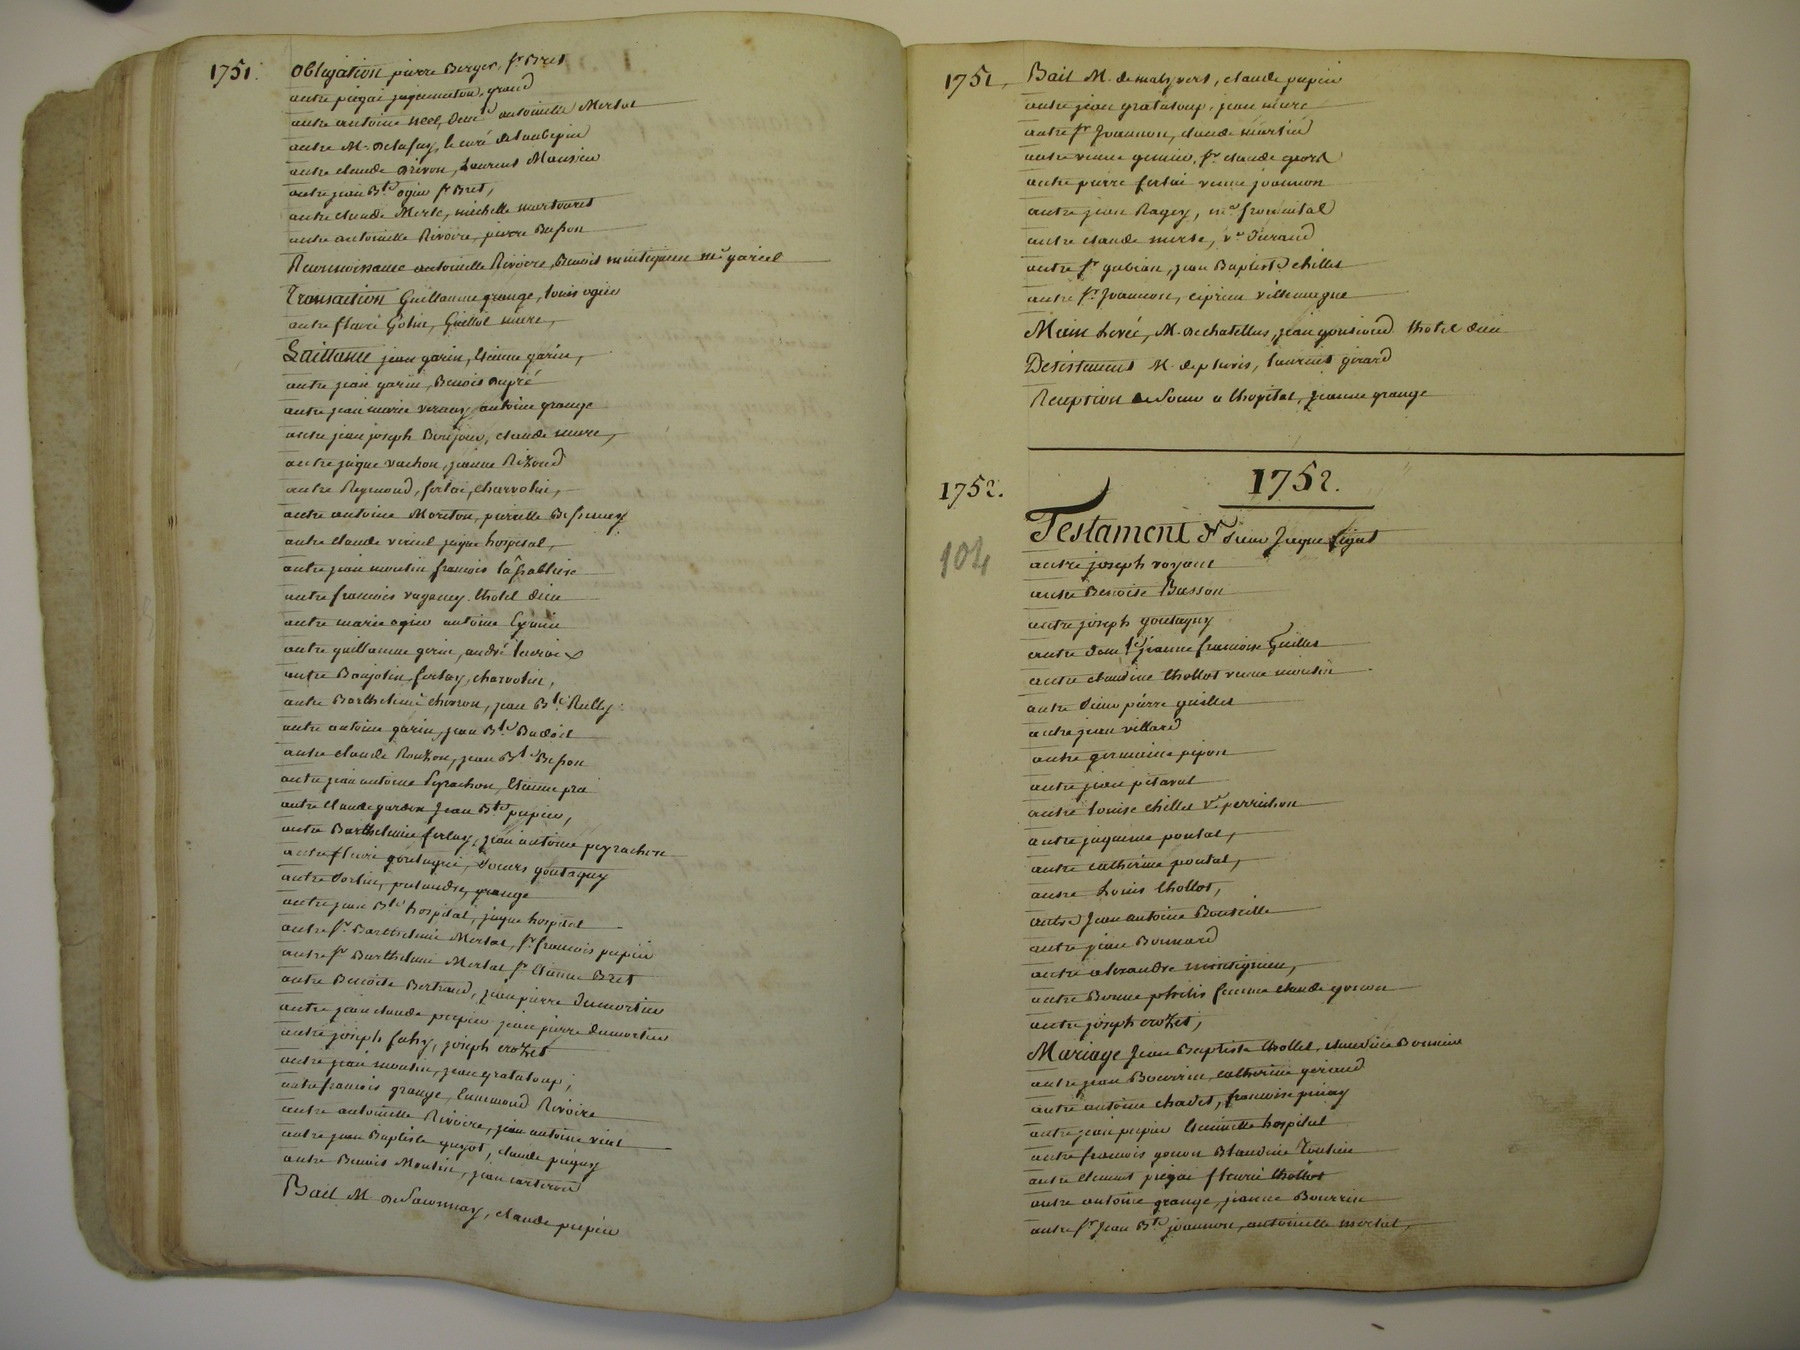 1751. Obligation pierre Berger, sr Bret
autre piégai jaquemeton, grand
autre antoine neel, Dem.lle antoinette Merlat
autre M. Delafay, le curé de Laubepin
autre claude Drivon, Laurent Mansieu
autre jean B.te ogier sr Bret,
autre claude Merle, michelle martouret
autre antoinette Rivoire, pierre Besson
Reconnoissance antoinette Rivoire, Benoit me gariel
Transaction Guillaume grange, louis ogier
autre fleurie Gobin, mure,
Quittance jean garin, Etienne garin,
autre jean garin, Benoit dupré
autre jean marie veraey antoine grange
autre jean joseph Bonjour, claude mure,
autre jaque vachon, jeanne Rizoud
autre Reymond, ferlai, charvolin,
autre antoine Moreton, pierrette Bessenay
autre claude viricel jaque hospital,
autre jean moulin françois la
autre francois vaganey. lhotel dieu
autre marie ogier antoine
autre guillaume gerin, andré lacroix
autre Banjolin ferlay, charvolin,
autre Barthelemi chovron, jean B.te Rully.
autre antoine garin, jean B.te Badoil
autre claude Rouzon, jean B.te Besson
autre jean antoine Peyrachon, Etienne pra
autre Claude gardon Jean B.te pupier,
autre Barthelemie ferlay, jean antoine peyrachon
autre fleurie goutagni, Soeurs goutagny
autre grange
autre jean B.te hospital, jaque hospital
autre sr. Barthelemi Merlat, sr. francois pupier
autre sr Barthelemi Merlat sr Etienne Bret
autre Benoite Bertrand, jean pierre Dumortier
autre jean claude pupier jean pierre dumortier
autre joseph fahy, joseph crozet
autre jean moulin, jean grataloup,
autre francois grange, Ennemond Rivoire
autre antoinette Rivoire, jean antoine vial
autre jean Baptiste guyot, claude piegay
autre Benoit Moulin, jean carteron
Bail M. De Savonnay, claude pupier
1751. Bail M. de malyvert, claude pupier
autre jean grataloup, jean mure
autre sr Joannon, claude martin
autre veuve genier, sr. claude
autre pierre ferlai veuve joannon
autre jean Ragey, me fromental
autre claude merle, ve Durand
autre sr gubian, jean Baptiste chillet
autre sr. Joannon, ciprien villemagne
Main Levée, M. de chatellus, jean gonsioud lhotel dieu
Desistement M. de pluvis, laurent girard
Reception de Soeur a lhopital, jeanne grange
1752.
1752. Testament de Sieur Jaque
104
autre joseph voyant
autre Benoite Basson
autre joseph goutagny
autre dem.lle jeanne francoise Guillet
autre claudine thollot veuve moulin
autre Sieur pierre guillet
autre jean villard
autre germaine pipon
autre jean pitaval
autre louise chillet ve perrichon
autre jaqueme poutal,
autre catherine poutal,
autre Louis thollot,
autre Jean antoine Bouteille
autre jean Bonnard
autre alexandre montignieu,
autre Bonne philis femme claude gonon
autre joseph crozet,
Mariage Jean Baptiste thollet, claudine Bonnier
autre jean Bourrin catherine giraud
autre antoine chavet, francoise pinay
autre jean pupier Etiennette hospital
autre francois gonon Blandine
autre clement piegai fleurie thollot
autre antoine grange, jeanne Bourrin
autre sr Jean B.te joannon, antoinette merlat,